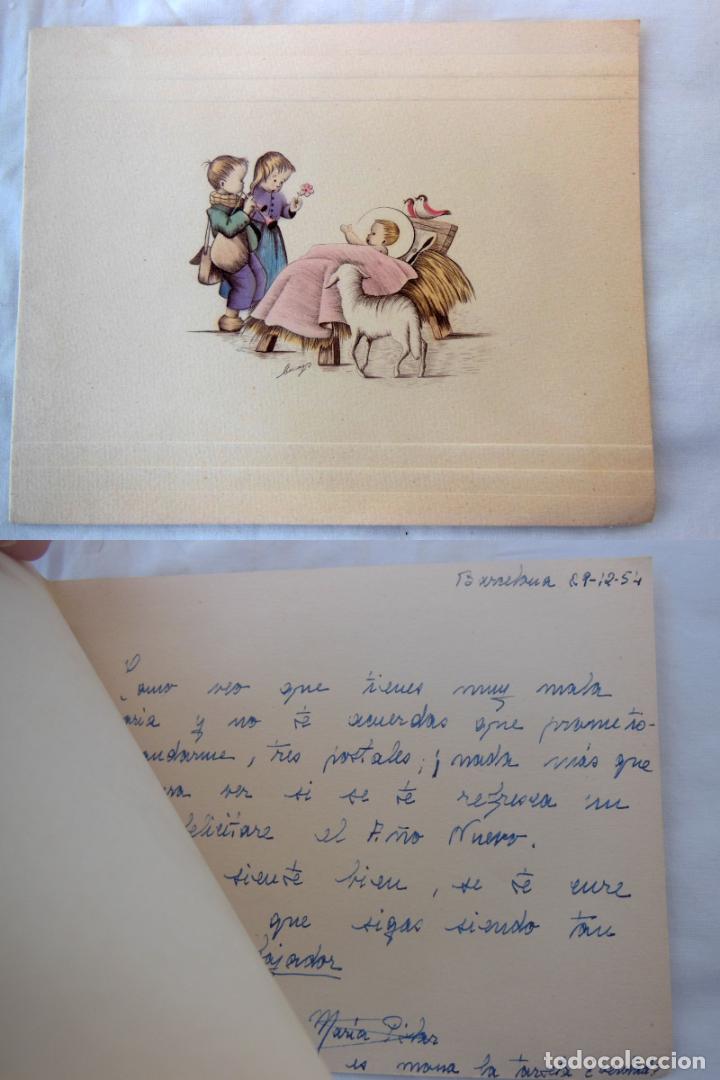 Barcelona 29-12-54
Como veo que tienes muy mala
oria y no te acuerdas que prometis-
andarme, tres postales; ¡nada más que
ara ver si se te refresca un
felicitare el Año Nuevo.
siente bien, se te cure
que sigas siendo tan
bajador
María Pilar
es mona la tarjeta
todocoleccion